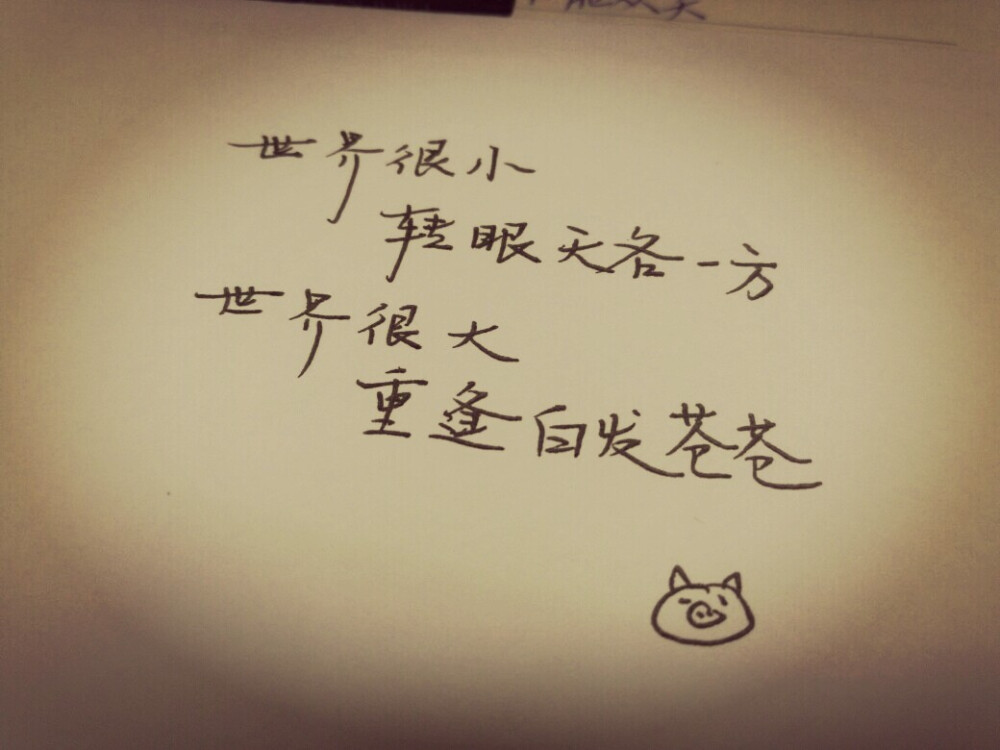 世界很小
转眼天各一方
世界很大
重逢白发苍苍